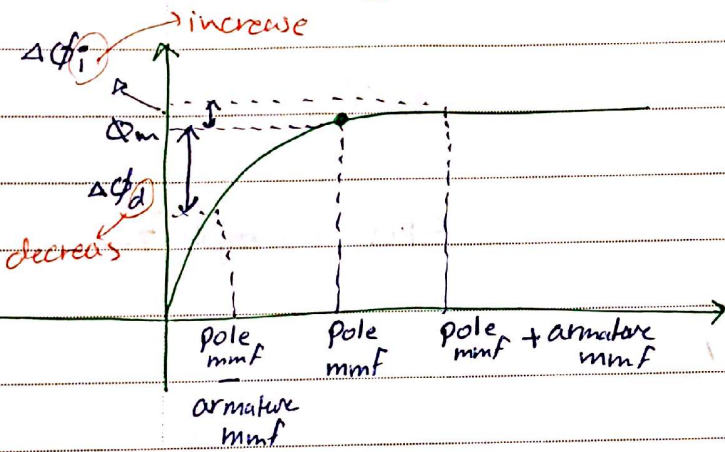 increase
Δϕi
ϕm
Δϕd
decreas
pole
mmf
-
armature
mmf
pole
mmf
pole
mmf + armature
mmf